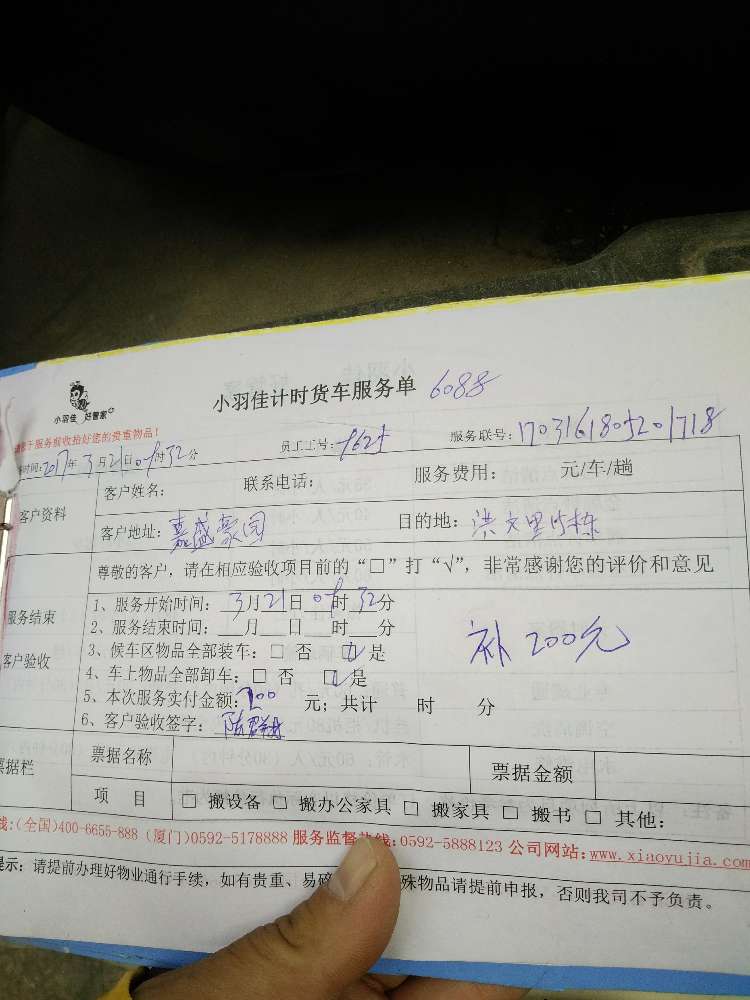 小羽佳计时货车服务单 6088
小羽佳 好管家
服务前收拾好您的贵重物品!
时间:2017年3月21日08时32分 员工工号: 服务联号:170316180521718
客户资料
客户姓名: 联系电话: 服务费用: 元/车/趟
客户地址:嘉盛豪园 目的地:洪文里 栋
尊敬的客户,请在相应验收项目前的“□”打“√”,非常感谢您的评价和意见
服务结束
客户验收
1、服务开始时间:3月21日08时32分
2、服务结束时间:___月___日___时___分
补200元
3、候车区物品全部装车:□ 否 ☑是
4、车上物品全部卸车:□ 否 ☑是
5、本次服务实付金额:200 元;共计 时 分
6、客户验收签字:
票据栏
票据名称 票据金额
项 目 □ 搬设备 □ 搬办公家具 □ 搬家具 □ 搬书 □ 其他:
线:(全国)400-6655-888 (厦门)0592-5178888 服务监督热线:0592-5888123 公司网站:www.xiaoyujia.com
提示:请提前办理好物业通行手续,如有贵重、易碎 殊物品请提前申报,否则我司不予负责。